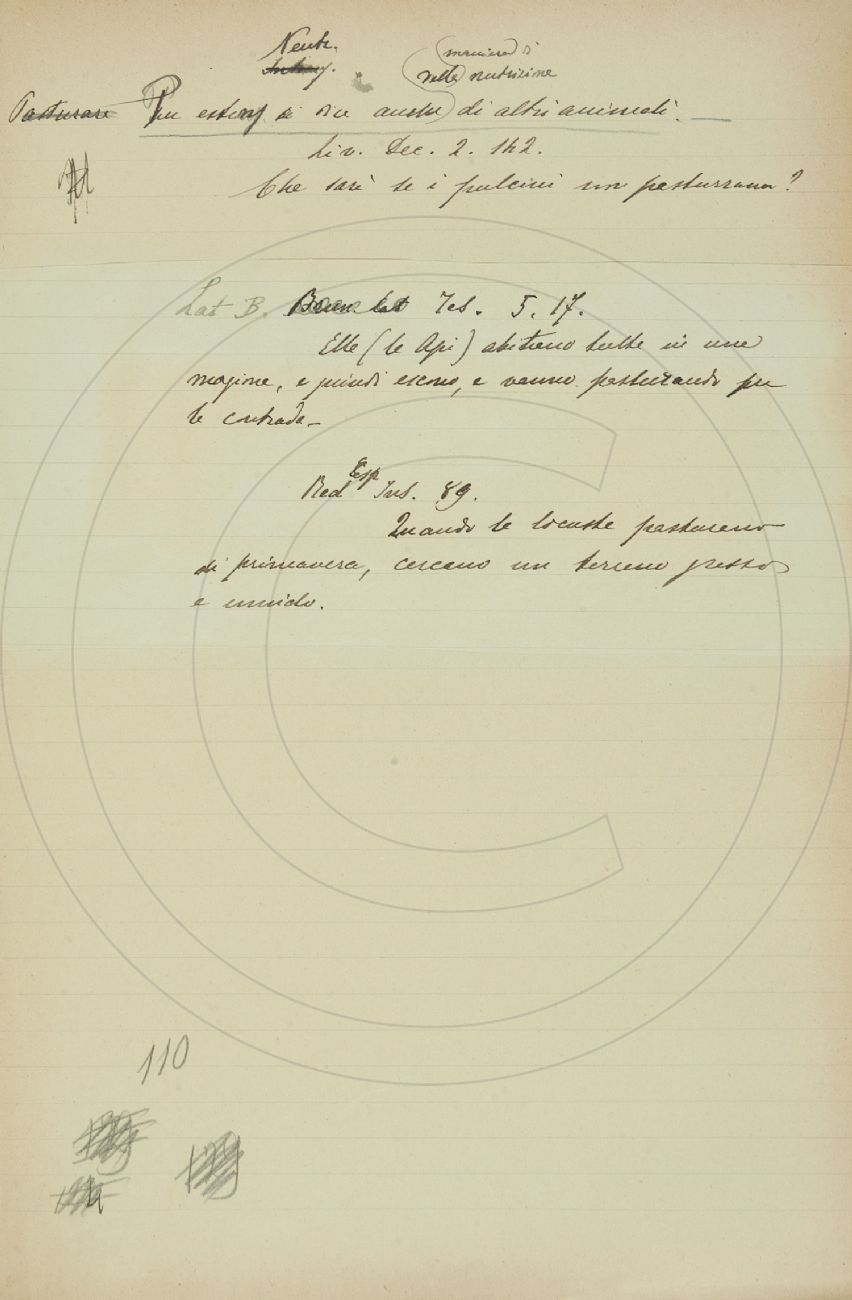 Neutr.
maniera di
nella nutrizione
Pasturare Per estens. si dice anche di altri animali.
Liv. Dec. 2. 142.
Che sarà se i pulcini non pasturranno?
Lat B. Brun. lat Tes. 5. 17.
Elle (le Api) abitano tutte in una
magione, e quindi escono, e vanno pasturando per
le contrada
Red Esp Ins. 89.
Quando le locuste pasturano
di primavera, cercano un terreno grasso
e umido.
110